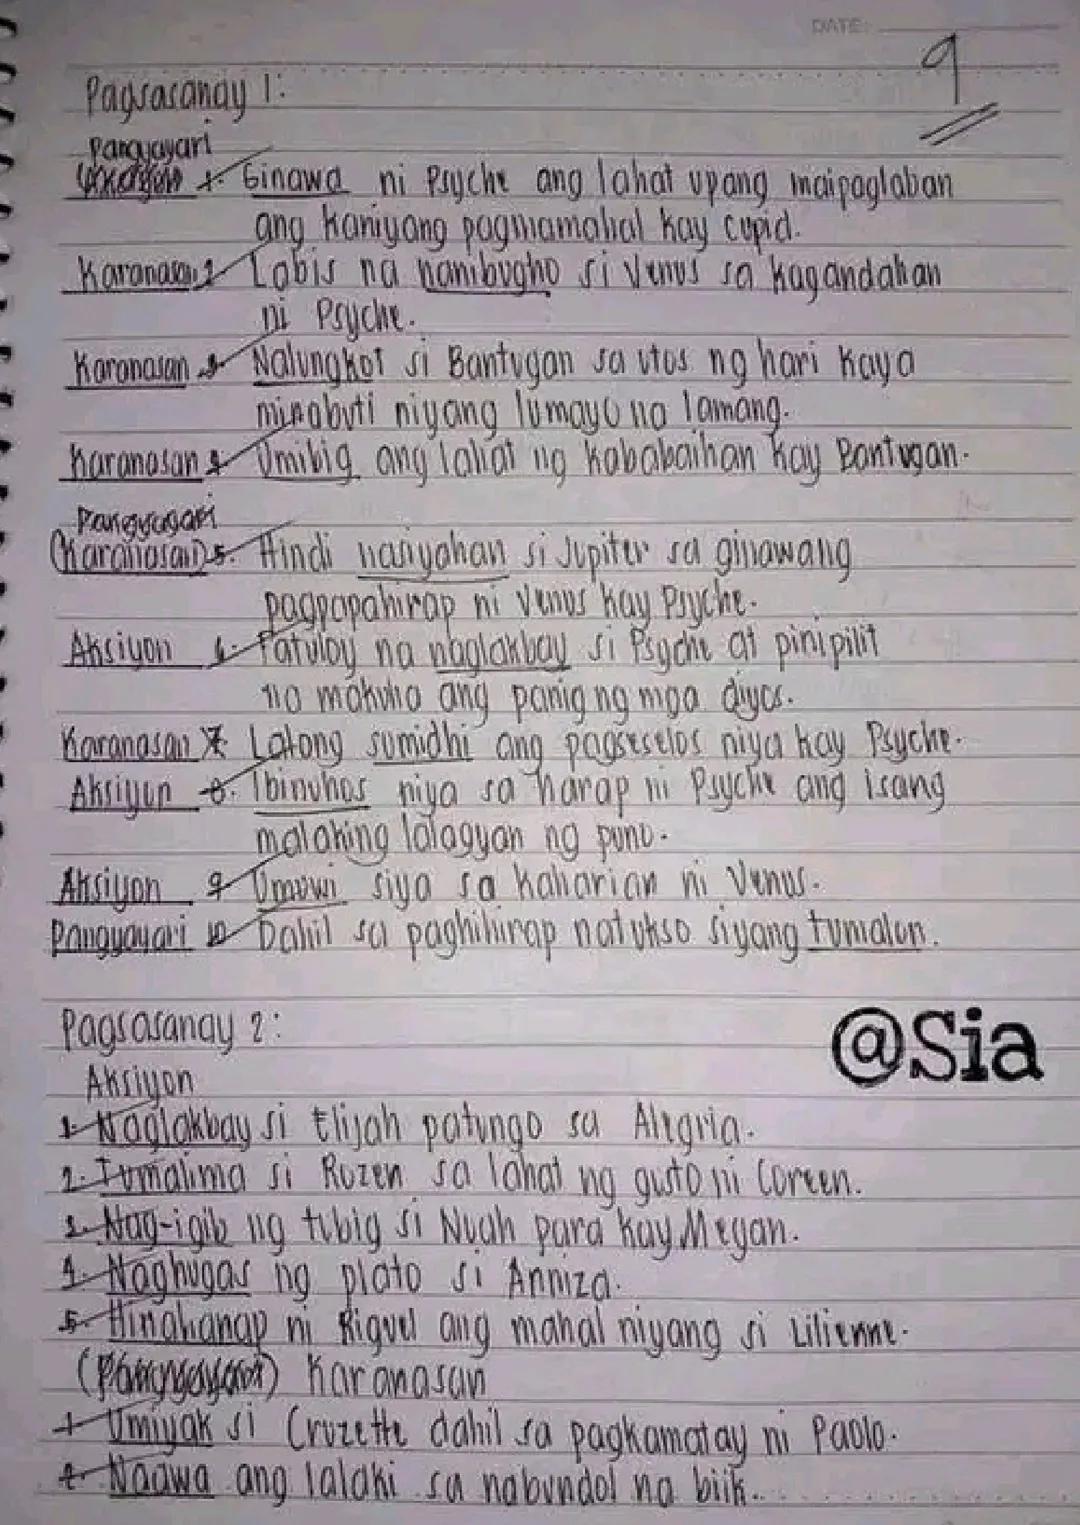 DATE:
9
Pagsasanay 1:
Pangyayari
1. Ginawa ni Psyche ang lahat upang maipaglaban
ang kaniyang pagmamahal kay cupid.
Karanasan 2 Labis na nanibugho si Venus sa kagandahan
ni Psyche.
Karanasan 3 Nalungkot si Bantugan sa utos ng hari kaya
minabuti niyang lumayo na lamang.
Karanasan 4 Umibig ang lahat ng kababaihan kay Bantugan.
Pangyayari
(Karanasan) 5. Hindi nasiyahan si Jupiter sa ginawang
pagpapahirap ni Venus kay Psyche.
Aksiyon 6. Patuloy na naglakbay si Psyche at pinipilit
na makuha ang panig ng mga diyos.
Karanasan 7. Lalong sumidhi ang pagseselos niya kay Psyche.
Aksiyon 8. Ibinuhos niya sa harap ni Psyche ang isang
malaking lalagyan ng
Aksiyon 9 Umuwi siya sa kaharian ni Venus.
Pangyayari 10 Dahil sa paghihirap natukso siyang tumalon.
Pagsasanay 2:
@Sia
Aksiyon
1. Naglakbay si Elijah patungo sa Alegria.
2. Tumalima si Rozen sa lahat ng gusto ni Coreen.
3. Nag-igib ng tubig si Nuah para kay Megan.
4. Naghugas ng plato si Anniza.
5. Hinahanap ni Riguel ang mahal niyang si Lilienne.
(Pangyayari) Karanasan
1. Umiyak si Cruzette dahil sa pagkamatay ni Paolo.
2. Naawa ang lalaki sa nabundol na biik.